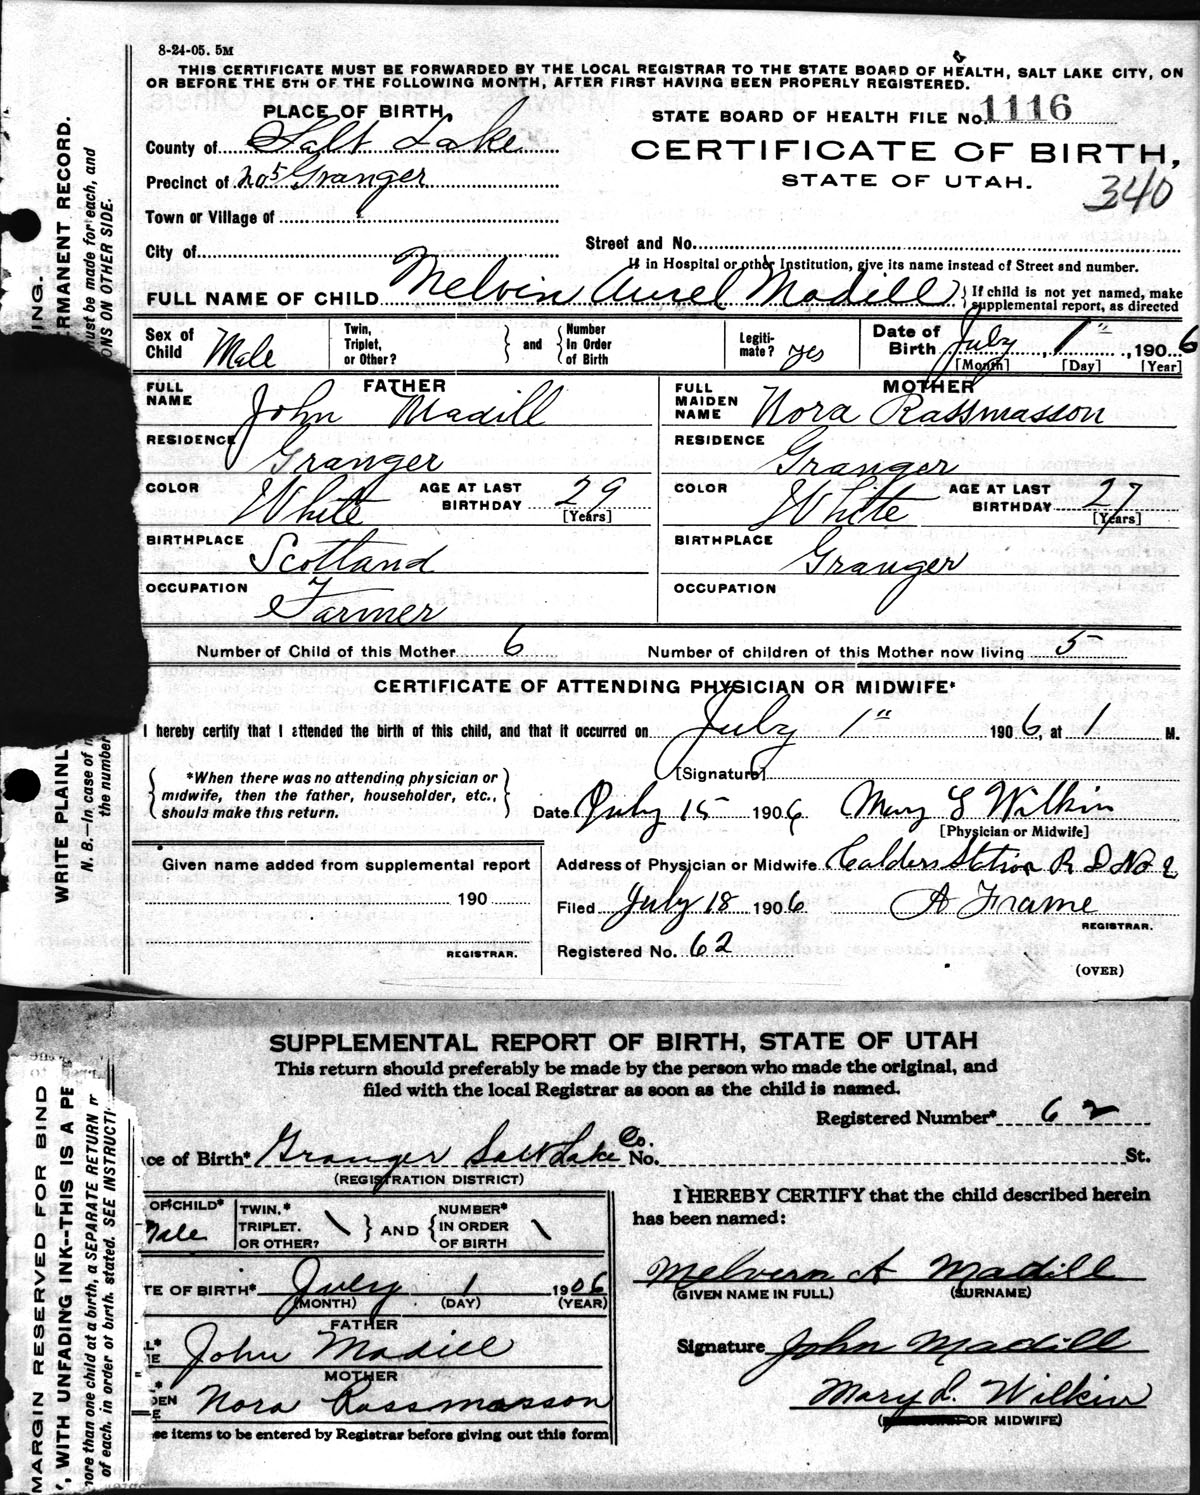 8-24-05. 5M
THIS CERTIFICATE MUST BE FORWARDED BY THE LOCAL REGISTRAR TO THE STATE BOARD OF HEALTH, SALT LAKE CITY, ON
OR BEFORE THE 5TH OF THE FOLLOWING MONTH, AFTER FIRST HAVING BEEN PROPERLY REGISTERED.
PLACE OF BIRTH,
STATE BOARD OF HEALTH FILE No. 1116
County of Salt Lake
CERTIFICATE OF BIRTH,
Precinct of No 5 Granger
STATE OF UTAH.
340
Town or Village of
City of
Street and No.
If in Hospital or other Institution, give its name instead of Street and number.
FULL NAME OF CHILD Melvin Aurel Madill } { If child is not yet named, make
supplemental report, as directed
Sex of Child Male
Twin, Triplet, or Other? } and { Number In Order of Birth
Legitimate? yes
Date of Birth July 1", 1906
[Month] [Day] [Year]
FATHER
FULL NAME John Madill
MOTHER
FULL MAIDEN NAME Nora Rassmasson
RESIDENCE Granger
RESIDENCE Granger
COLOR White AGE AT LAST BIRTHDAY 29 [Years]
COLOR White AGE AT LAST BIRTHDAY 27 [Years]
BIRTHPLACE Scotland
BIRTHPLACE Granger
OCCUPATION Farmer
OCCUPATION
Number of Child of this Mother 6 Number of children of this Mother now living 5
CERTIFICATE OF ATTENDING PHYSICIAN OR MIDWIFE*
I hereby certify that I attended the birth of this child, and that it occurred on July 1" 1906, at 1 M.
[Signature]
{ *When there was no attending physician or
midwife, then the father, householder, etc.,
should make this return. }
Date July 15 1906 Mary L Wilkin
[Physician or Midwife]
Given name added from supplemental report
190
REGISTRAR.
Address of Physician or Midwife Calders Station R D No 2
Filed July 18 1906 A Frame
REGISTRAR.
Registered No. 62
(OVER)
SUPPLEMENTAL REPORT OF BIRTH, STATE OF UTAH
This return should preferably be made by the person who made the original, and
filed with the local Registrar as soon as the child is named.
Registered Number* 62
ce of Birth* Granger Salt Lake Co. No. St.
(REGISTRATION DISTRICT)
OF CHILD* Male
TWIN,* TRIPLET, OR OTHER? \ } AND { NUMBER* IN ORDER OF BIRTH \
I HEREBY CERTIFY that the child described herein
has been named:
TE OF BIRTH* July 1 1906
(MONTH) (DAY) (YEAR)
Melvern A Madill
(GIVEN NAME IN FULL) (SURNAME)
FATHER
John Madill
Signature John Madill
MOTHER
DEN Nora Rassmasson
Mary L. Wilkin
OR MIDWIFE)
se items to be entered by Registrar before giving out this form
ING.
ERMANENT RECORD.
must be made for each, and
ONS ON OTHER SIDE.
WRITE PLAINLY
N. B.—In case of
the number
MARGIN RESERVED FOR BIND
, WITH UNFADING INK--THIS IS A PE
more than one child at a birth, a SEPARATE RETURN
of each, in order of birth, stated. SEE INSTRUCTI